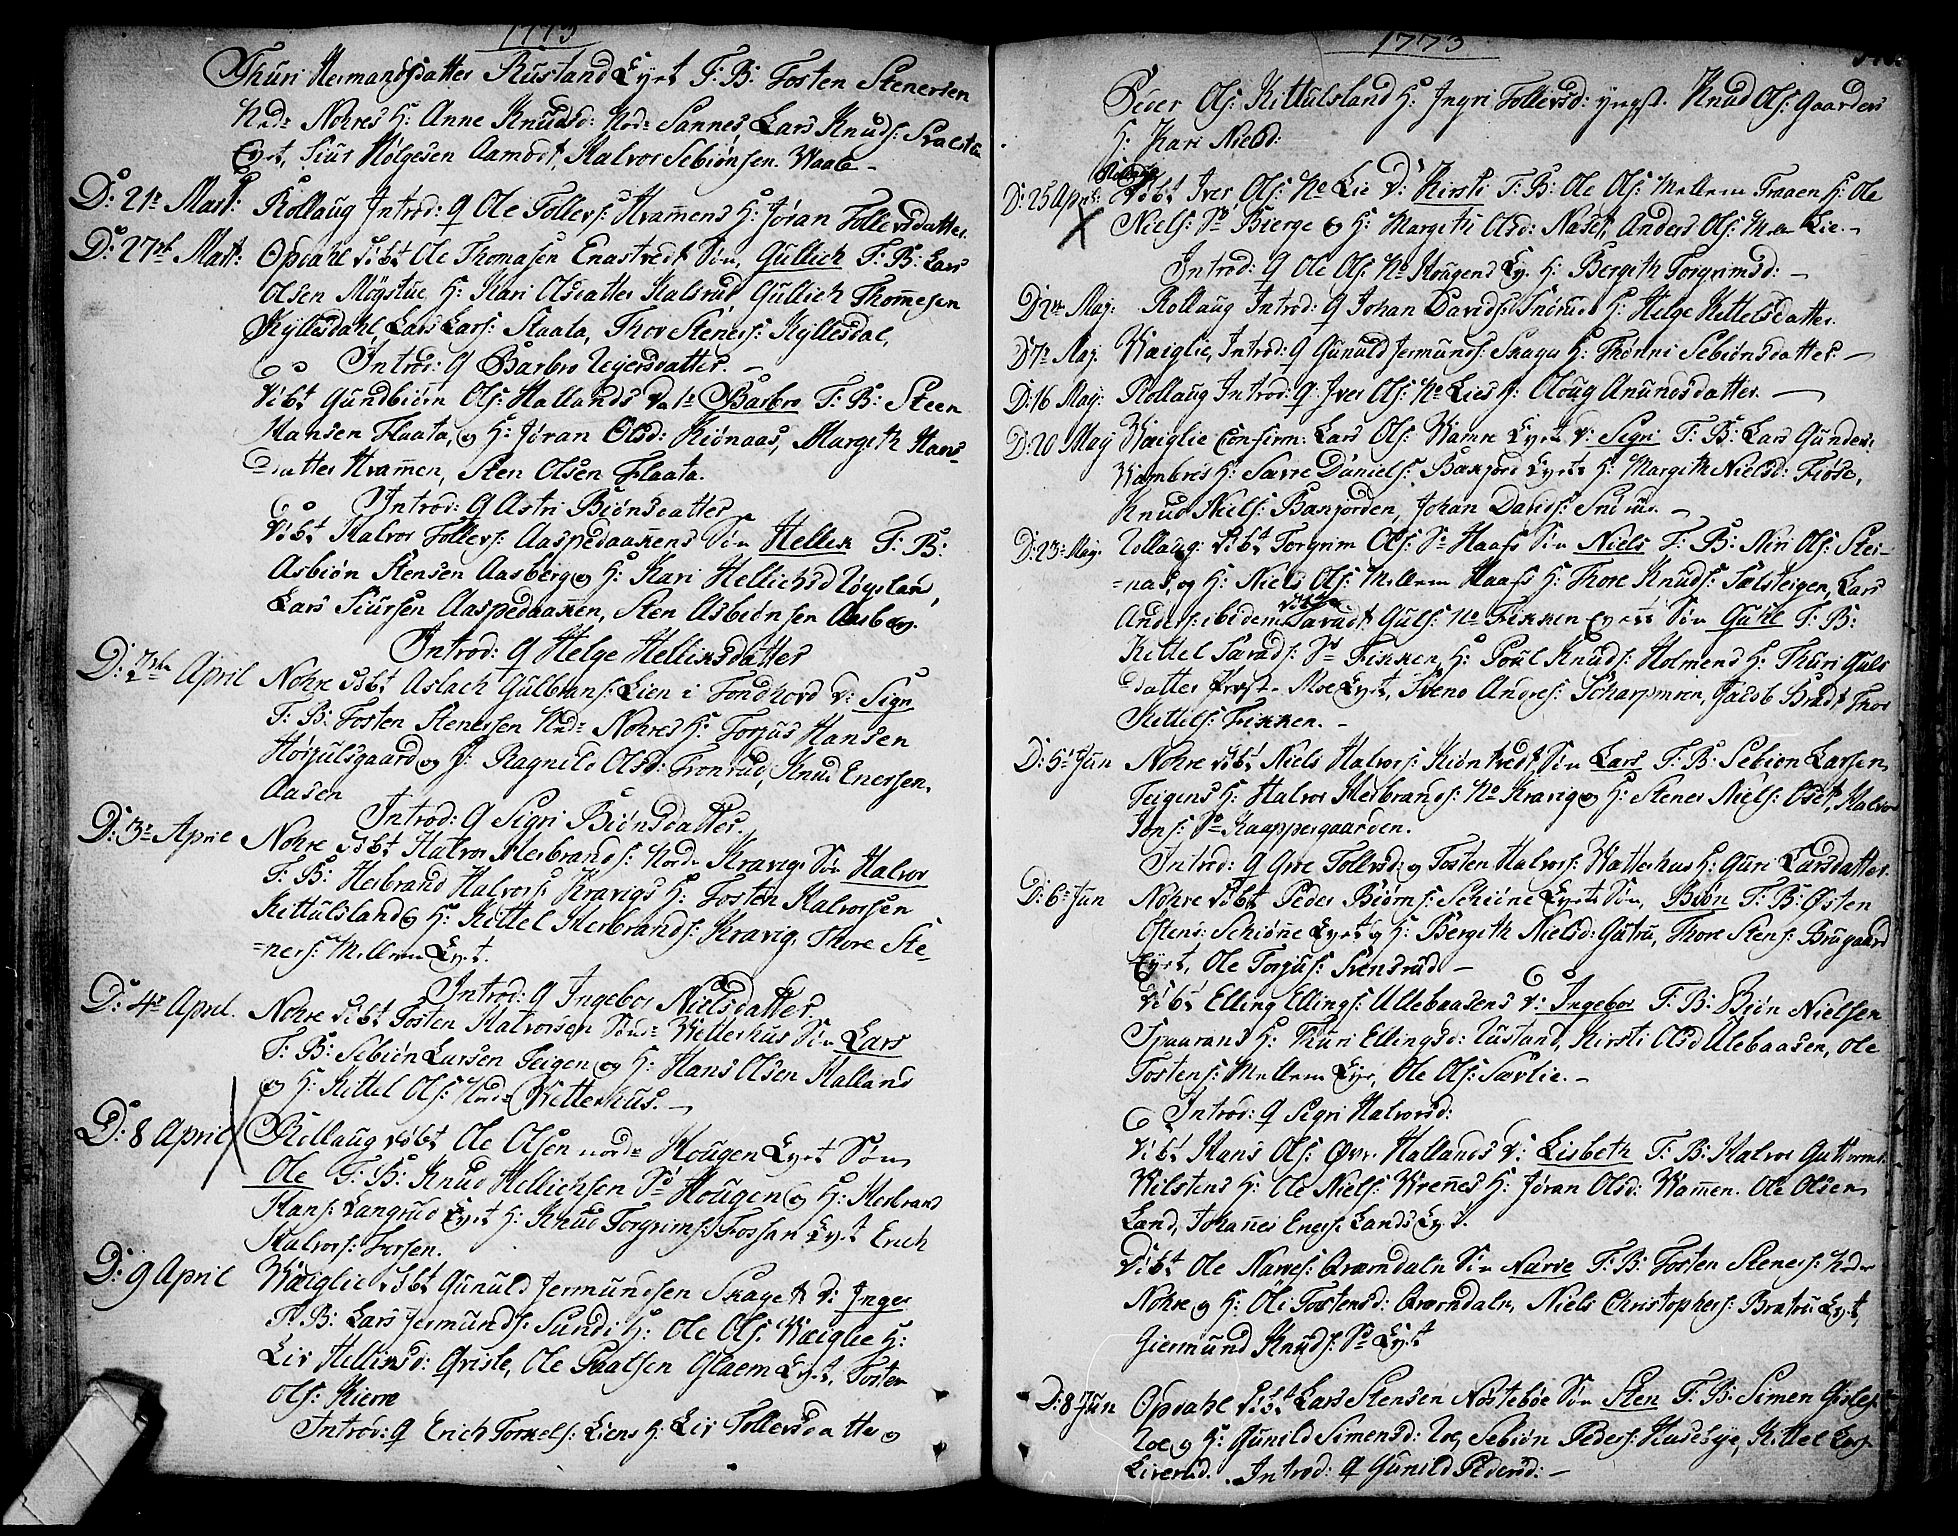 1773
Thuri Hermandsdatter Rustand Eyet F: B: Tosten Stenersen
Nrd: Nohres H: Anne Knudsd: Nor: Sannes Lars Knuds:
Eyet, Siur Hølgesen Aamodt, Halvor Sebiønsen. Waale –
D: 21e Mart: Rollaug Introd: Q Ole Tollefs: Hvamens H: Jøran Tollevsdatter.
D: 27de Mart: Opdahl døbt Ole Thomasen Enestvedt Søn, Gullich F: B: Lars
Olsen Møystue, H: Kari Olsdatter Halsrud Gullich Thomesen
Kyllesdahl, Lars Lars: Flaata, Thor Steners: Kyllesdal,
Introd: Q Barbro Reyersdatter. –
døbt Gundbiørn Ols: Hallands Dat: Barbro F: B: Steen
Hansen Flaata, og H: Jøran Olsd: Kiønaas, Margith Hans-
datter Hvamen, Sten Olsen Flaata.
Introd: Q Astri Biønsdatter
døbt Halvor Tollefs: Aaspedaakens Søn Hellik F: B:
Asbiøn Stensen Aasberg og H: Kari Hellichsd Røysland,
Lars Siursen Aaspedaaken, Sten Asbiønsen Aasberg.
Introd: Q Helge Helliksdatter
D: 2den April Nohre døbt Aslach Gulbrans: Lien i Tondhord D: Sigri
F: B: Tosten Stenersen Nrd: Nohres H: Torjus Hansen
Hørjulsgaard og H: Ragnild Olsd: Tronrud, Knud Enersen,
Aasen
Introd: Q Sigri Biønsdatter.
D: 3e April Nohre døbt Halvor Herbrands: Nordr Kravig: Søn Halvor
F: B: Herbrand Halvors: Kravigs H: Tosten Halvorsen
Kittulsland og H: Kittel Herbrands: Kravig, Thore Ste-
=ners: Mellem Eyet.
Introd: Q Ingebor Nielsdatter
D: 4e April. Nohre døbt Tosten Halvorsen Sønr Wetterhus Søn Lars
F: B: Sebiøn Larsen Teigen og H: Hans Olsen Halland
og H: Kittel Ols: Nordr Wetterhus. –
D: 8 April Rollaug døbt Ole Olsen nordr Hougen Eyet Søn
Ole F: B: Knud Hellichsen Sø Hougen og H: Herbrand
Hans: Langrud Eyet H: Knud Torgrims: Fossan Eyet Erich
Halvors: Forsen.
D: 9 April Wæiglie døbt Gunuld Jermundsen Skaget D: Inger
F: B: Lars Jermunds: Sundi H: Ole Ols: Wæiglie H:
Liv Helliksd: Grisle, Ole Paalsen Glaem Eyet, Tosten
Ols: Kierre
Introd: Q Erich Torkels: Liens H: Liv Tollevsdatter
1773
Peier Ols: Kittulsland H: Ingri Tollevsd: yngst. Knud Ols: Gaarders
H: Kari Nielsd:
Rollaug
D: 25 April: døbt Iver Ols: Ne Lie D: Kirsti F: B: Ole Ols: Mellem Traaen H: Ole
Niels: Sø Bierge og H: Margith Olsd: Naset, Anders Ols: Mem Lie. –
Introd: Q Ole Ols: No Hougens Ey. H: Bergith Torgrimsd: –
D: 2den Maj: Rollaug Introd: Q Johan Davids: Snøruds H: Helge Kittelsdatter.
D 7e Maj: Wæiglie, Introd: Q Gunuld Jermunds: Skagu H: Thønni Sebiønsdatter. –
D: 16 Maj: Rollaug Introd: Q: Iver Ols: No Lies H: Oloug Anundsdatter. –
D: 20 Maj Wæiglie Confirm: Lars Ols: Wamn Eyet D: Sigri F: B: Lars Gunders:
Wambres H: Savre Daniels: Bakjord Eyets H: Margith Nielsd: Fiøse,
Knud Niels: Bakjorden, Johan Davids: Snørud. –
D: 23: Maj: Rollaug: døbt Torgrim Ols: Sø Haafs Søn Niels F: B: Niri Ols: Stei-
=nas, og H: Niels Ols: Mellem Haafs H: Thore Knuds: Sælsteigen, Lars
Anders: ibidem døbt Tarald Guls: No Fikken Eyets Søn Guhl F: B:
Kittel Tarads: Sø Fikken, H: Poul Knuds: Holmens H: Thuri Guls
datter Moe Eyet, Svend Andres: Scharpmoen, Jacob Bradt Thor
Kittels: Fikken. –
D: 5e Jun Nohre døbt Niels Halvors: Kiøntvedt, Søn Lars F: B: Sebiøn Larsen
Teigens H: Halvor Herbrands: No Kravig og H: Stener Niels: Oset, Halvor
Jons: Sø Kaappergaarden.
Introd: Q Groe Tollevsd: og Tosten Halvors: Watterhus H: Guri Larsdatter.
D: 6e Jun Nohre døbt Peder Biørns: Schiøne Eyets Søn, Biøn F: B: Østen
Østens: Schiøne Eyet og H: Bergith Nielsd: Gutru, Thore Stens: Brugaard
Eyet, Ole Torjus: Svensrud –
døbt Elling Ellings: Ullebaasens D: Ingebor F: B: Biøn Nielsen
Traarans H: Thuri Ellingsd: Rustand, Kirsti Olsd Ulebaasen, Ole
Tostens: Mellem Eye, Ole Ols: Sævlie. –
Introd: Q Sigri Halvorsd:
døbt Hans Ols: Øvr Hallands D: Lisbeth F: B: Halvor Guttorms:
Wilstens H: Ole Niels: Wrenes H: Jøran Olsd: Wamen. Ole Olsen
Land, Johanes Eners: Lands Eyet.
døbt Ole Narves: Qværndaln Søn Narve F: B: Tosten Steners: Nordr
Nohre og H: Oli Tostensd: Qværndaln, Niels Christophers: Bratru Eyet,
Giermund Knuds: Sø Eyet
D: 8 Jun Opdahl døbt Lars Stensen Nøstebøe Søn Sten F: B: Simen Gisles:
Roe og H: Gunild Simensd: Roe, Sebiøn Peders: Husebye, Kittel Lars:
Liverud. Introd: Q Gunild Pedersd: –